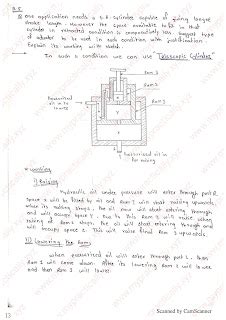 One application needs a S.A. cylinder capable of giving longer
stroke length. However the space available to fit in that
cylinder in retracted condition is comparatively less. Suggest type
of actuator to be used in such condition with justification.
Explain its working with sketch.
In such a condition we can use "Telescopic Cylinder"
Ram 3
Ram 2
Ram 1
Pressurised
oil in to
lower
Pressurised oil in
for raising
* Working
i) Raising
Hydraulic oil under pressure will enter through port
space will be filled by oil and Ram 1 will start raising upwards
when its raising stops, the oil now will start entering through
and will occupy space Y. Due to this Ram 2 will raise when
raising of Ram 2 stops. The oil will start entering through and
will occupy space Z. This will raise final Ram 3 upwards.
ii) Lowering the Ram
when pressurised oil will enter through port L. Then
Ram 1 will come down. After its lowering Ram 2 will lower
and then Ram 3 will lower.
13
Scanned by CamScanner